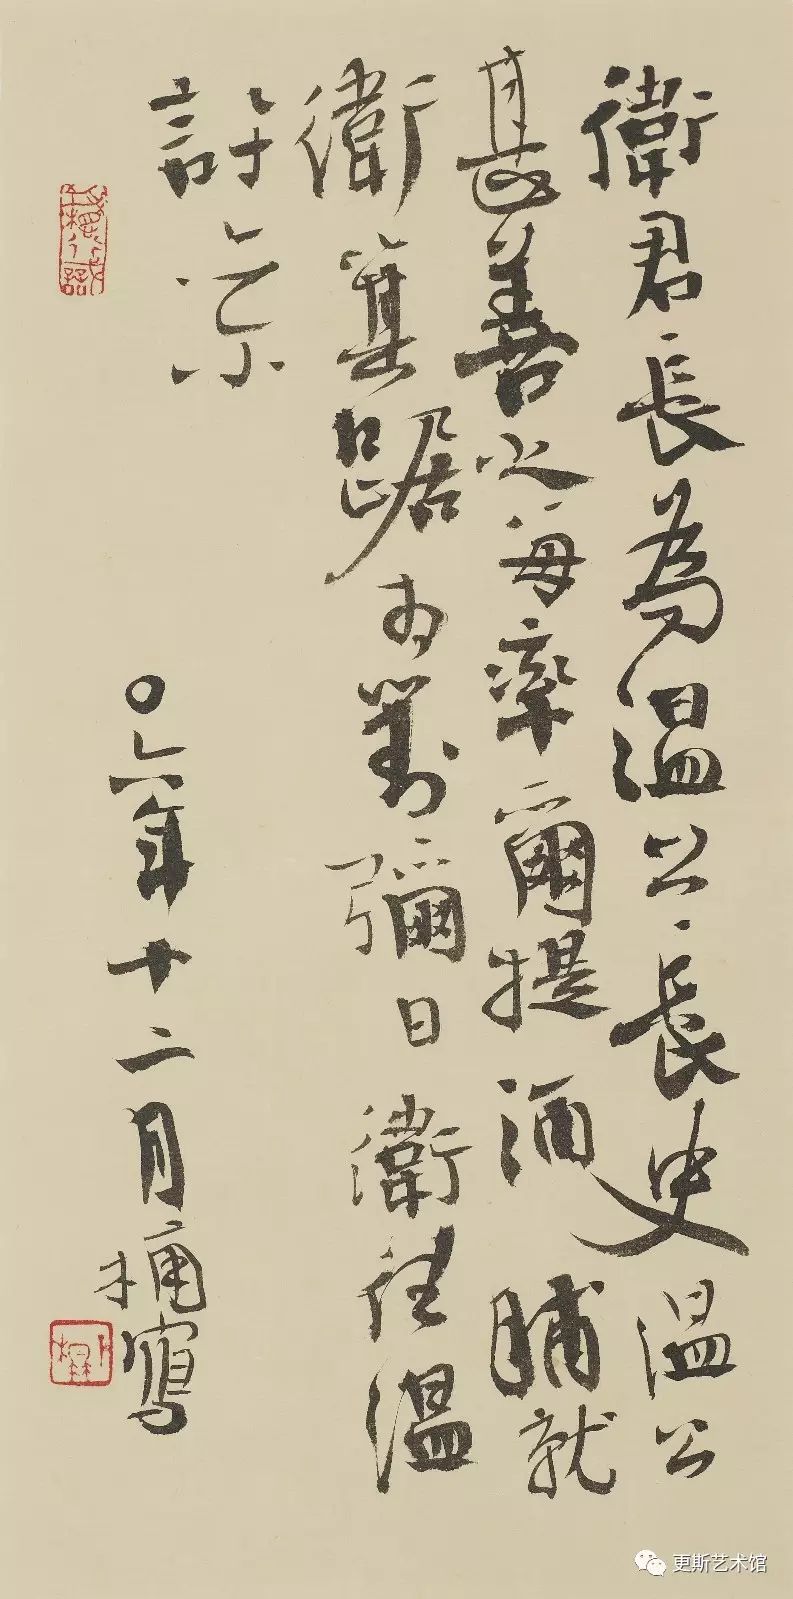 衛君長為温公長史温公
甚善之每率爾提酒脯就
衛箕踞相對彌日衛往温
許亦尔
〇六年十二月楠寫
更斯艺术馆